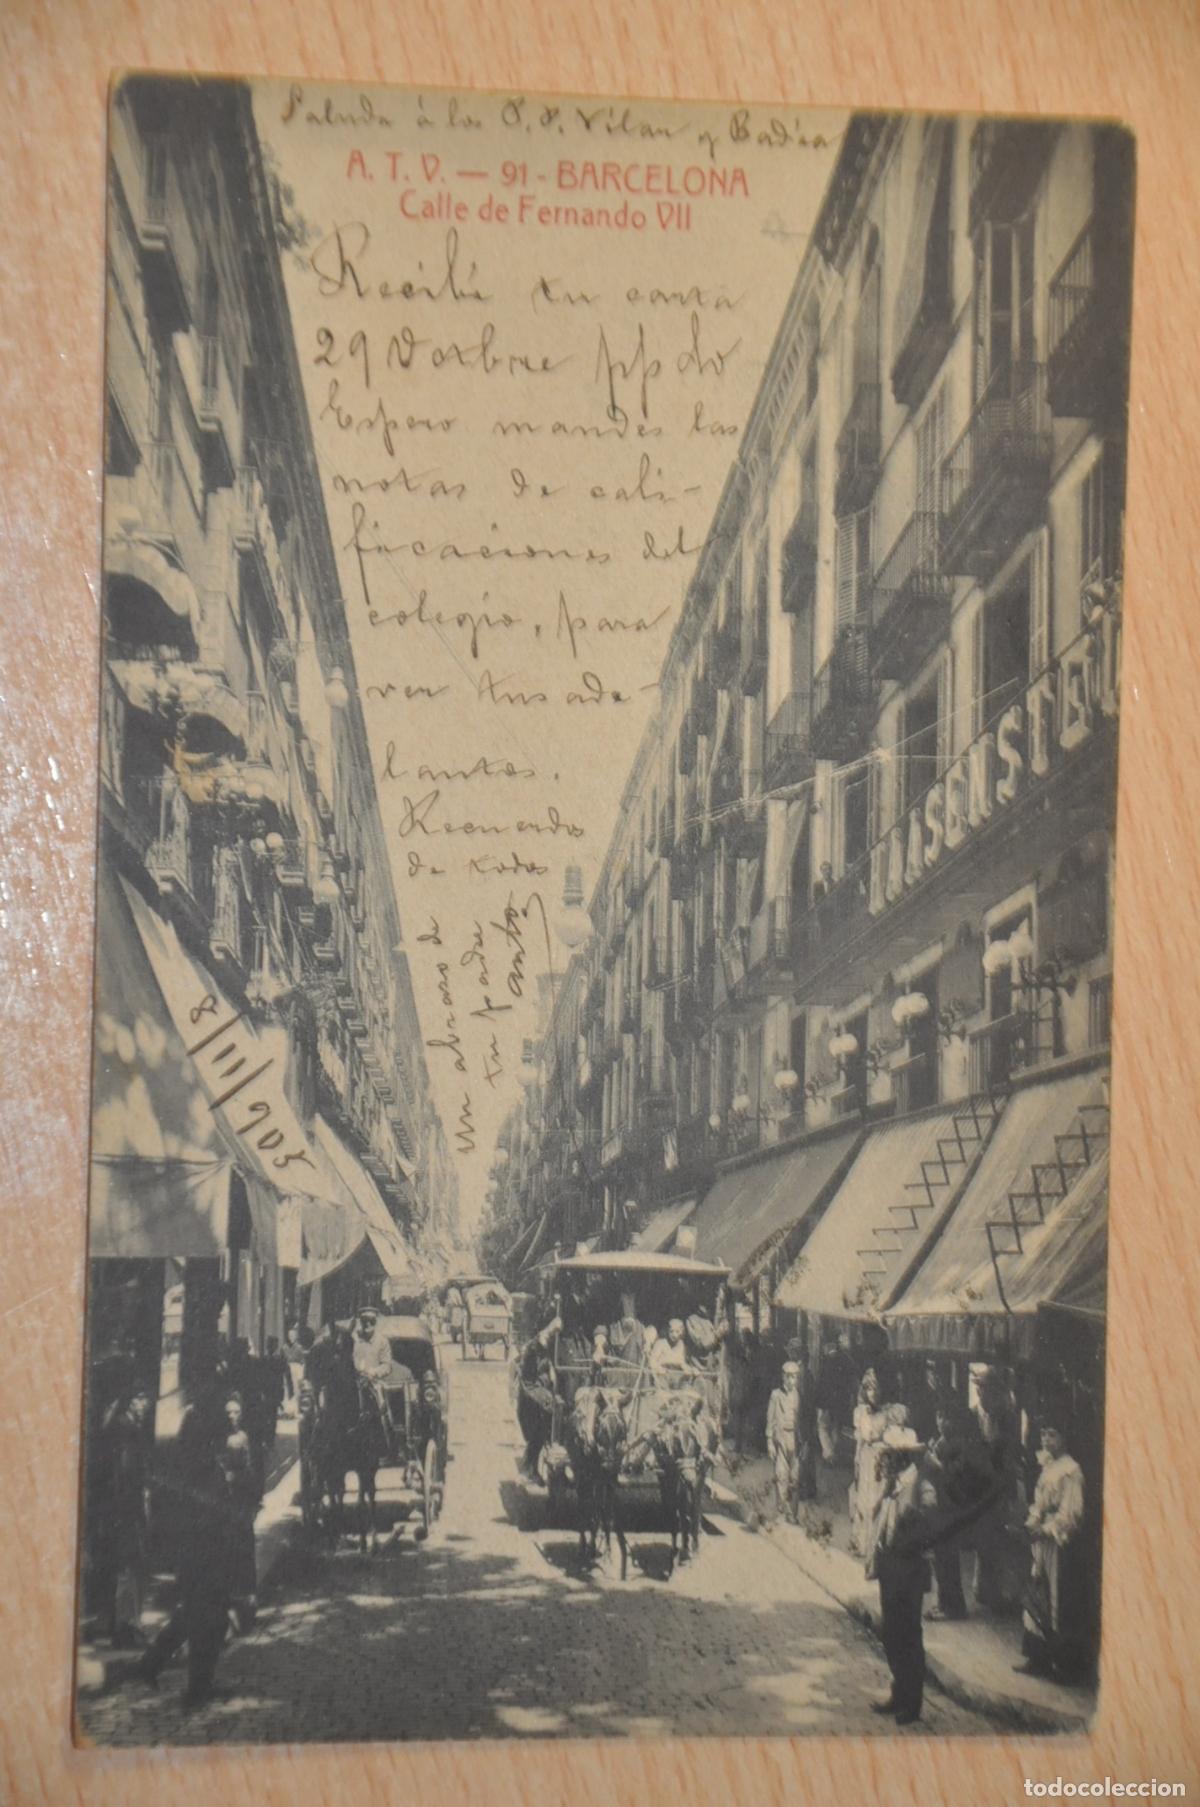 Saluda á los P.P. Vilar y Badia
A. T. V. — 91 - BARCELONA
Calle de Fernando VII
Recibí tu carta
29 Octbre pp do
Espero mandes las
notas de cali-
ficaciones del
colegio, para
ver tus ade-
lantos.
Recuerdos
de todos
un abrazo de
tu padre
8/11/905
todocoleccion